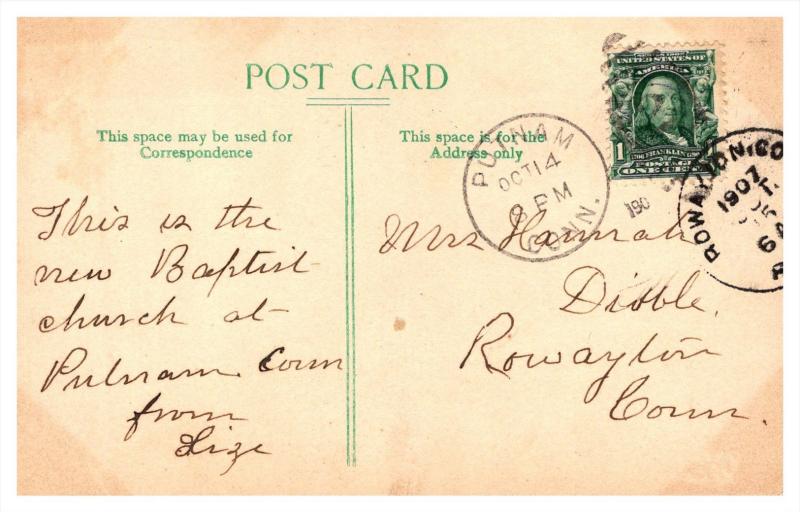 POST CARD
This space may be used for
Correspondence
This space is for the
Address only
UNITED STATES OF
AMERICA
1
FRANKLIN
POSTAGE
ONE CENT
PUTNAM
OCT 14
8 PM
CONN.
190
ROWAYTON, CO
1907
This is the
new Baptist
church at
Putnam Conn
from
Lize
Mrs Hannah
Dibble.
Rowayton
Conn.